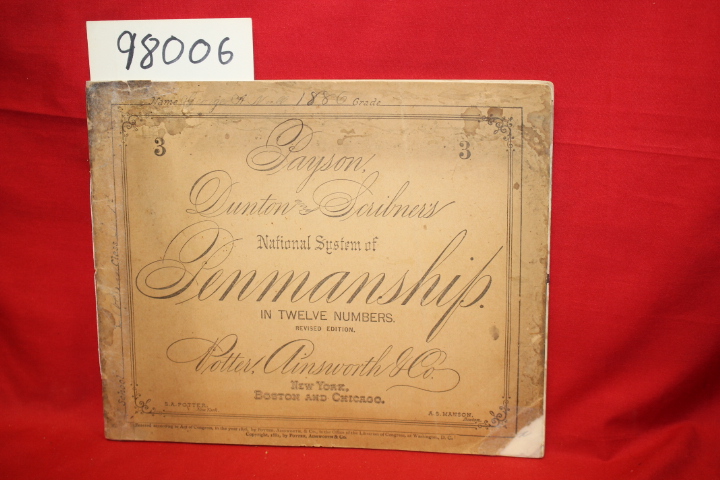 98006
Name 1886 Grade
3 3
Payson,
Dunton and Scribner's
National System of
Penmanship.
IN TWELVE NUMBERS.
REVISED EDITION.
Potter, Ainsworth & Co.
NEW YORK,
BOSTON AND CHICAGO.
S.A. POTTER, A.S. MANSON,
Copyright, by POTTER, AINSWORTH & CO.